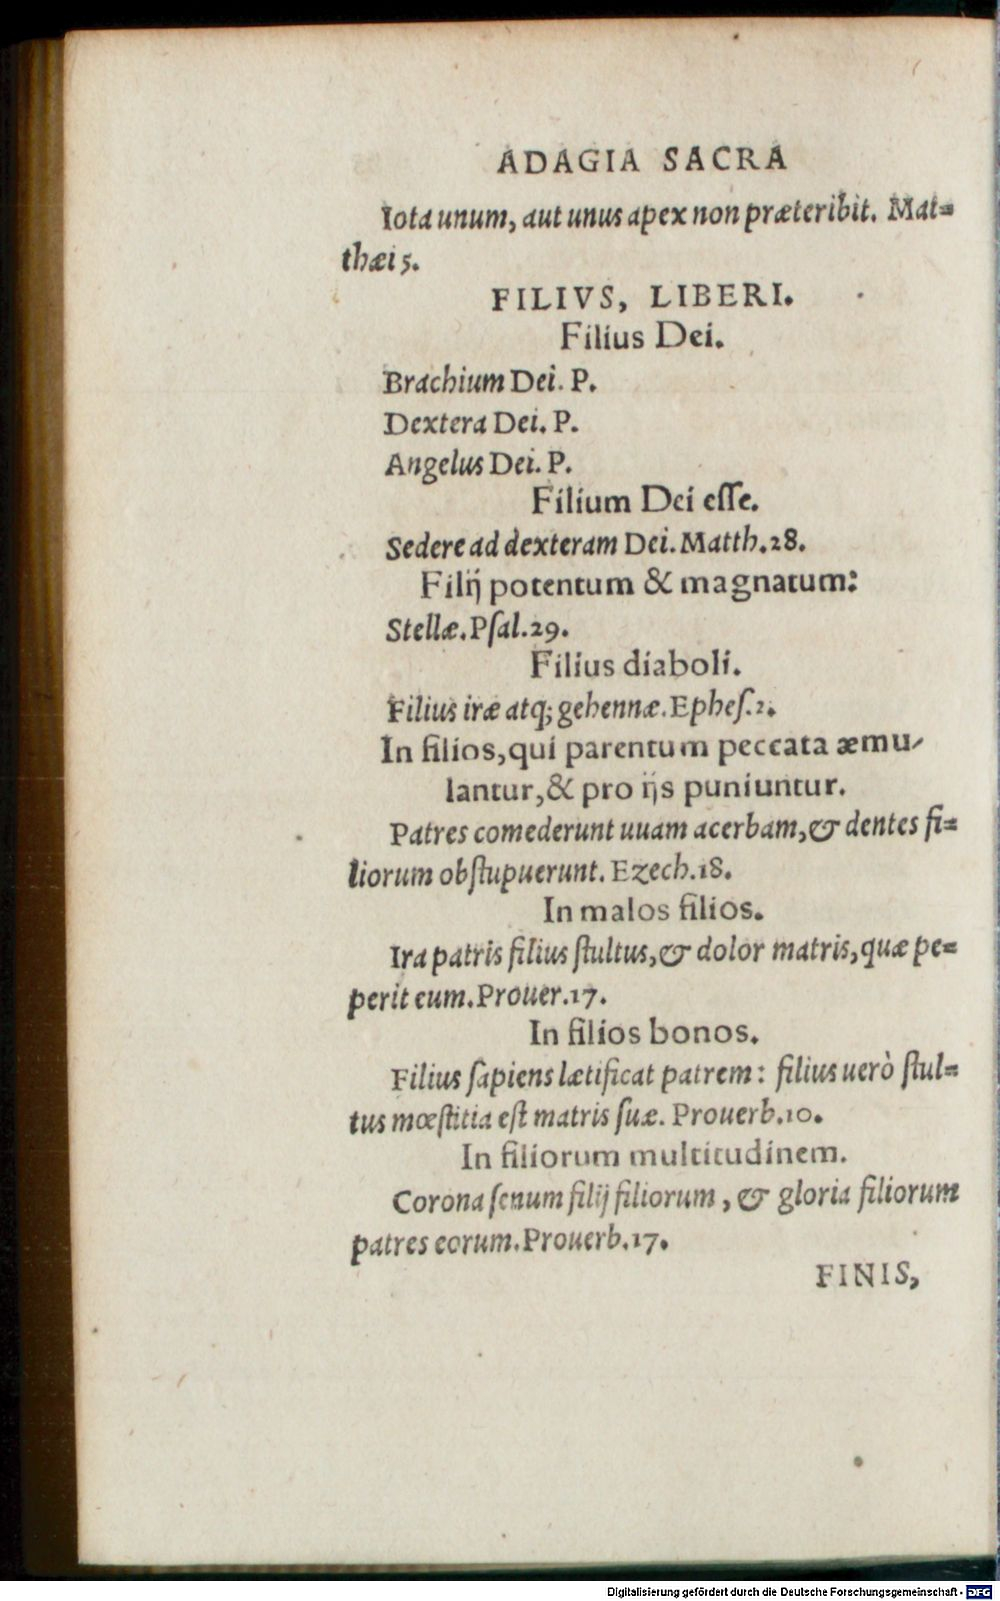 ADAGIA SACRA
Iota unum, aut unus apex non præteribit. Mat=
thæi 5.
FILIVS, LIBERI.
Filius Dei.
Brachium Dei. P.
Dextera Dei. P.
Angelus Dei. P.
Filium Dei eſſe.
Sedere ad dexteram Dei. Matth.28.
Filij potentum & magnatum:
Stellæ. Pſal.29.
Filius diaboli.
Filius iræ atq; gehennæ. Epheſ.2.
In filios, qui parentum peccata æmu⸗
lantur, & pro ijs puniuntur.
Patres comederunt uuam acerbam, & dentes fi=
liorum obſtupuerunt. Ezech.18.
In malos filios.
Ira patris filius ſtultus, & dolor matris, quæ pe=
perit eum. Prouer.17.
In filios bonos.
Filius ſapiens lætificat patrem: filius uerò ſtul=
tus mœſtitia eſt matris ſuæ. Prouerb.10.
In filiorum multitudinem.
Corona ſenum filij filiorum, & gloria filiorum
patres eorum. Prouerb.17.
FINIS,
Digitalisierung gefördert durch die Deutsche Forschungsgemeinschaft - DFG